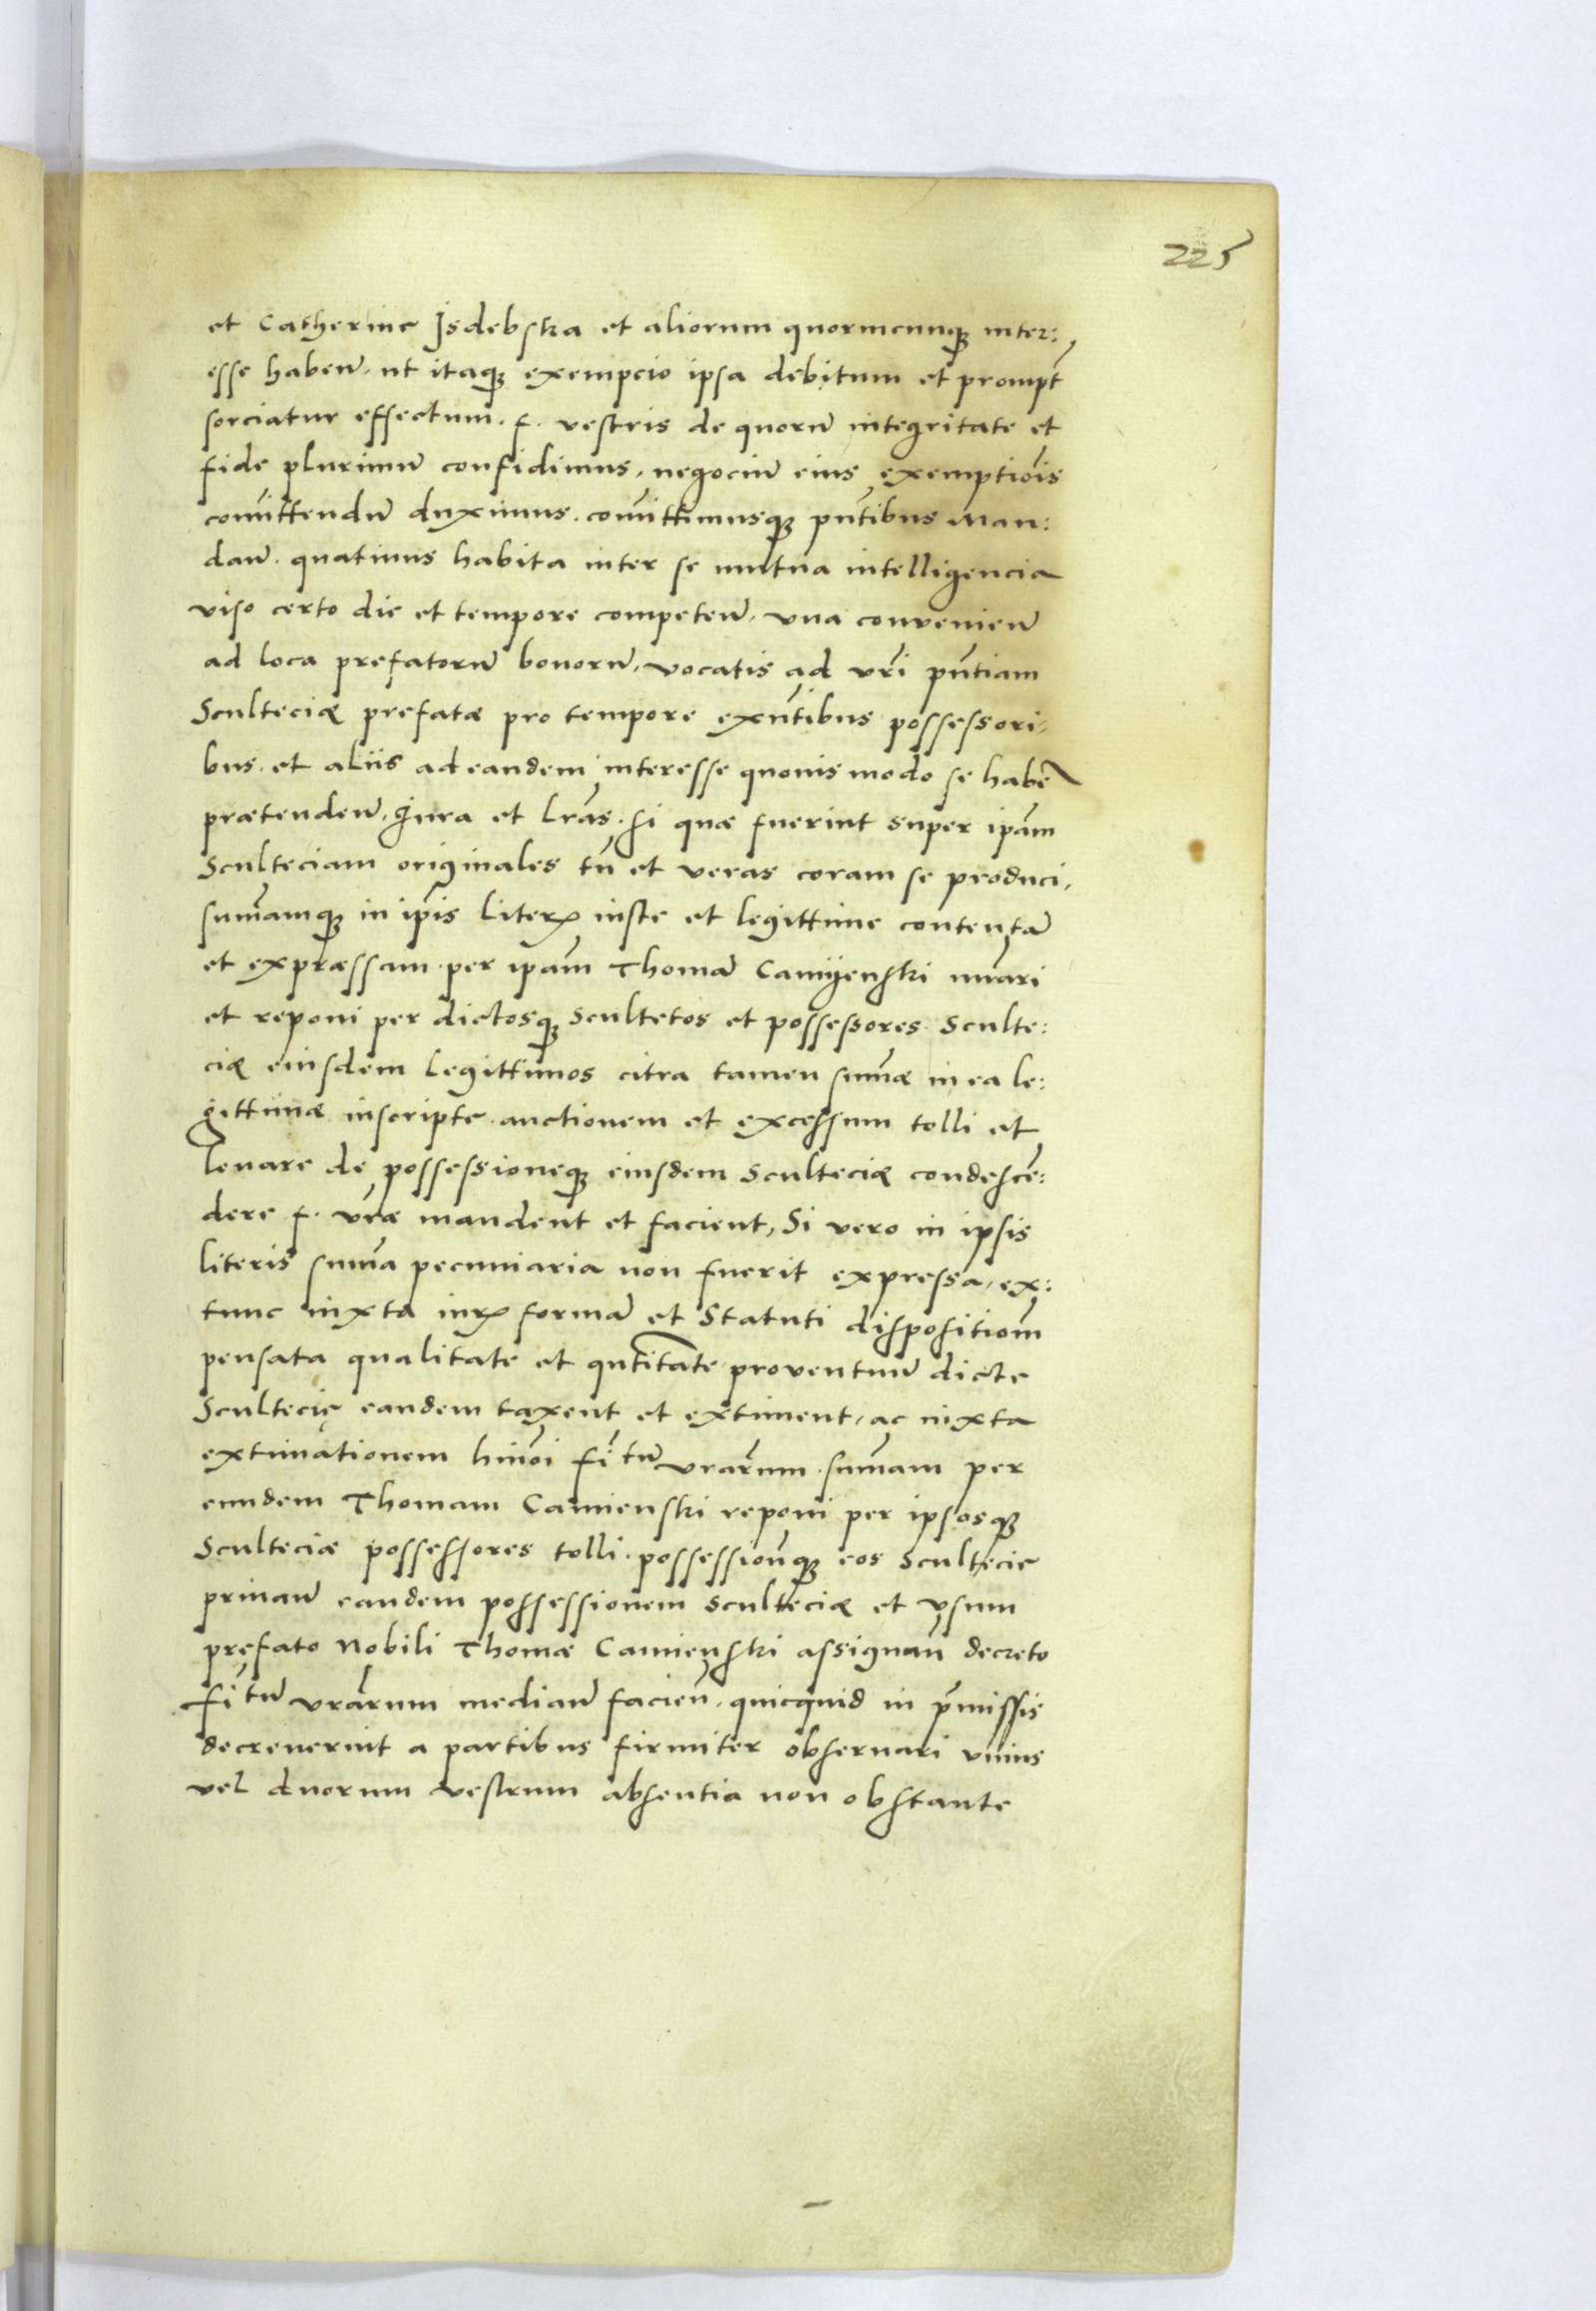 225
et Catherine Jsdebska et aliorum quorumcunqꝫ inter:
esse haben̄. ut itaqꝫ exempcio ipsa debitum et prompt̄
sorciatur effectum. f. vestris de quorū integritate et
fide plurimū confidimus, negociū eius exemptiōis
com̄ittendū duximus. com̄ittimusqꝫ pn̄tibus Man:
dan̄. quatinus habita inter se mutua intelligencia
viso certo die et tempore competen̄. vna convenien̄
ad loca prefatorū bonorū, vocatis ad vr̄i pn̄tiam
Sculteciæ prefatæ pro tempore exn̄tibus possessori-
bus. et aliis ad eandem interesse quovis modo se habē
prætenden̄. Jura et lr̄as. si quæ fuerint super ip̄am
Sculteciam originales tn̄ et veras coram se produci,
sum̄amqꝫ in ip̄is literꝭ iuste et legittime contentā
et expræssam. per ip̄am Thomā Camijenski nūari
et reponi per dictosqꝫ scultetos et possessores Sculte:
ciæ eiusdem legittimos citra tamen sum̄æ in ea le:
gittimæ inscripte. auctionem et excessum tolli et
levare de possessioneqꝫ eiusdem Sculteciæ condescē:
dere f. vr̄æ mandent et facient, Si vero in ipsis
literis sum̄a pecuniaria non fuerit expressa, ex:
tunc iuxta iurꝭ formā et Statuti dispositiōm
pensata qualitate et qn̄titate proventuū dicte
Scultecię eandem taxent et extiment, ac iuxta
extimationem hm̄oi fi tū vrārum. sum̄am per
eundem Thomam Camienski reponi per ipsosqꝫ
Sculteciæ possessores tolli. possessionēqꝫ eos Scultecie
privan̄ eandem possessionem Sculteciæ et vsum
pręfato Nobili Thomæ Camienski assignan̄ decreto
fi tū vrārum median̄ facien̄. quicquid in p̄missis
decreverint a partibus firmiter observari vnius
vel duorum vestrum absentia non obstante